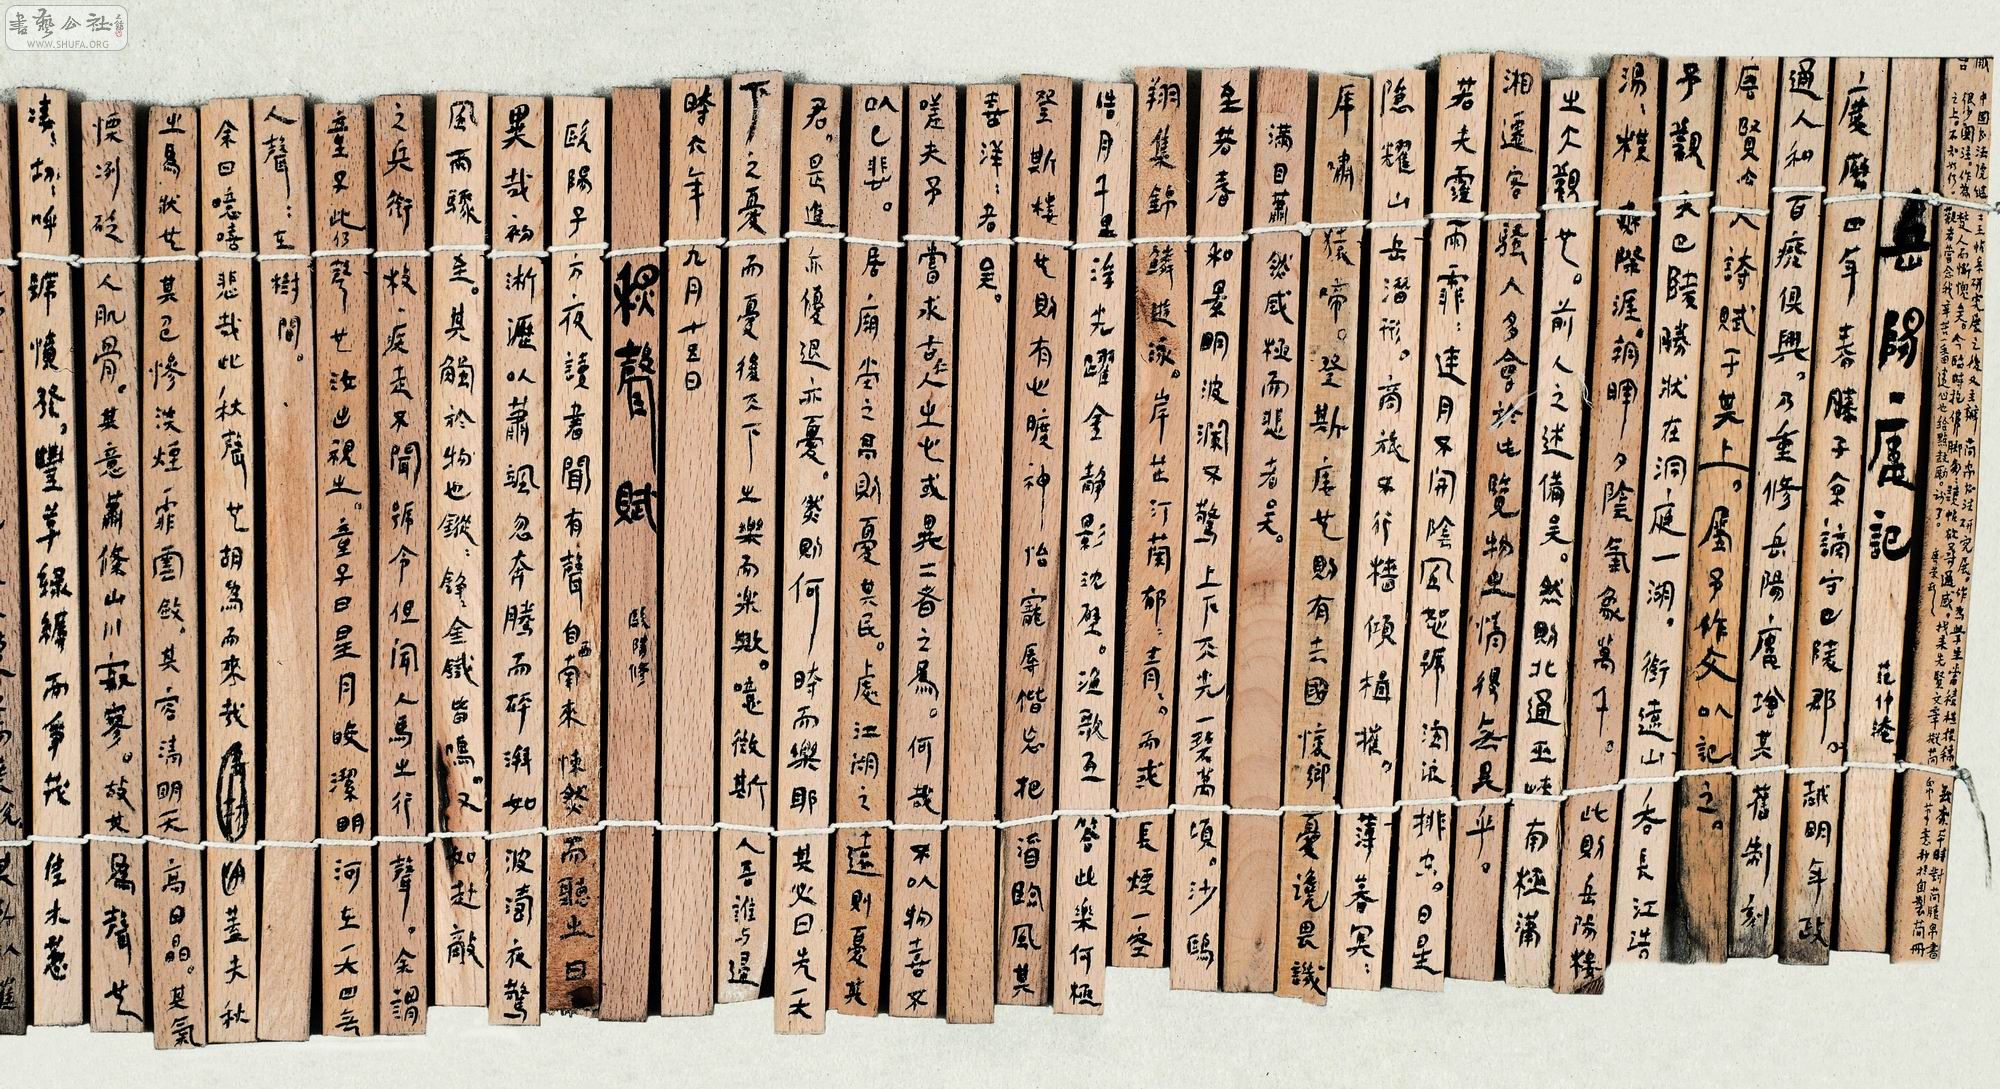 書藝公社
WWW.SHUFA.ORG
岳陽廔記 范仲淹
慶曆四年春滕子京謫守巴陵郡。越明年政
通人和百廢俱興。乃重修岳陽廔增其舊制刻
唐賢今人詩賦于其上。屬予作文以記之。
予觀夫巴陵勝狀在洞庭一湖。銜遠山吞長江浩〻
湯〻橫無際涯。朝暉夕陰氣象萬千。此則岳陽樓
之大觀也。前人之述備矣。然則北通巫峽南極瀟
湘遷客騷人多會於此覽物之情得無異乎。
若夫霪雨霏〻連月不開陰風怒號濁浪排空。日星
隱耀山岳潛形。商旅不行檣傾楫摧。薄暮冥〻
虎嘯猿啼。登斯廔也則有去國懷鄉憂讒畏譏
滿目蕭然感極而悲者矣。
至若春和景明波瀾不驚上下天光一碧萬頃。沙鷗
翔集錦鱗遊泳。岸芷汀蘭郁〻青〻。而或長煙一空
皓月千里浮光躍金靜影沈璧。漁歌互答此樂何極
登斯樓也則有心曠神怡寵辱偕忘把酒臨風其
喜洋〻者矣。
嗟夫予嘗求古仁人之心或異二者之爲。何哉不以物喜不
以己悲。居廟堂之高則憂其民。處江湖之遠則憂其
君。是進亦憂退亦憂。然則何時而樂耶其必曰先天
下之憂而憂後天下之樂而樂歟。噫微斯人吾誰與歸
時六年九月十五日
秋聲賦 歐陽修
歐陽子方夜讀書聞有聲自西南來悚然而聽之曰
異哉初淅瀝以蕭颯忽奔騰而砰湃如波濤夜驚
風雨驟至。其觸於物也鏦〻錚〻金鐵皆鳴。又如赴敵
之兵銜枚疾走不聞號令但聞人馬之行聲。余謂
童子此何聲也汝出視之。童子曰星月皎潔明河在天四無
人聲〻在樹間。
余曰噫嘻悲哉此秋聲也胡爲而來哉蓋夫秋
之爲狀也其色慘淡煙霏雲斂。其容清明天高日晶。其氣
慄冽砭人肌骨。其意蕭條山川寂寥。故其爲聲也
淒〻切〻呼號憤發。豐草綠縟而爭茂佳木蔥